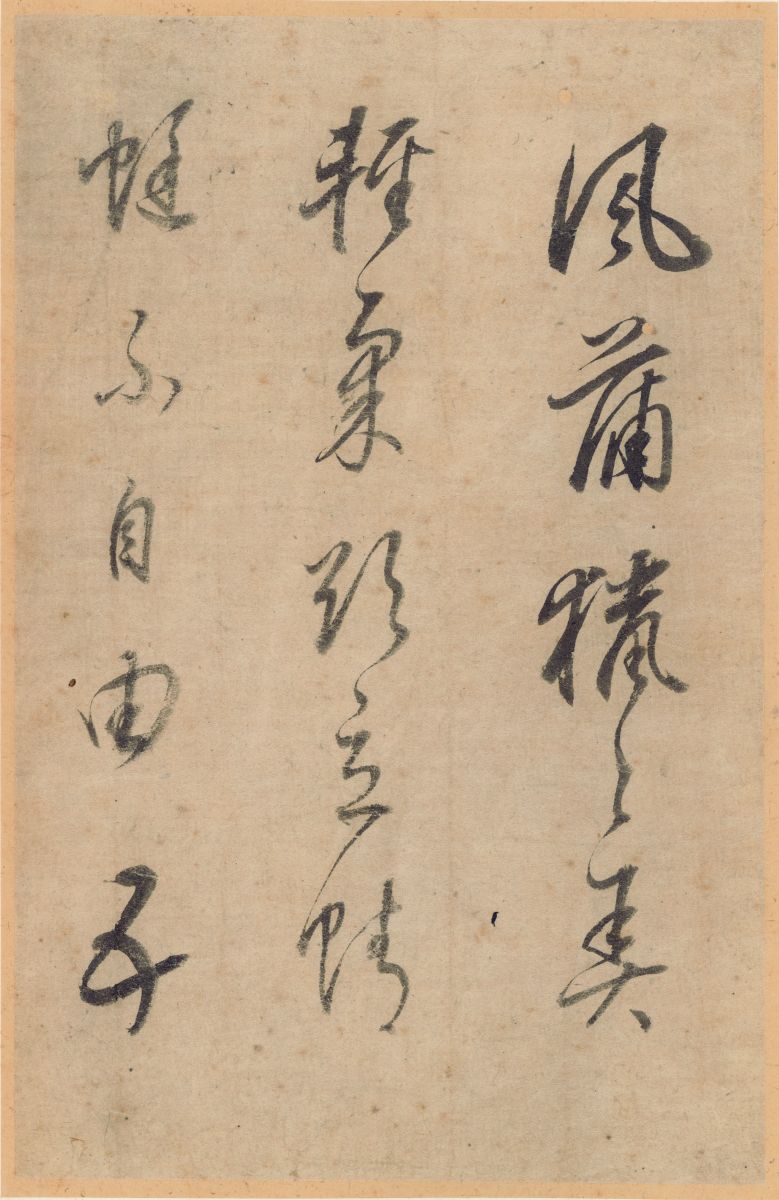 風蒲獵〻弄
輕柔欲立蜻
蜓不自由五